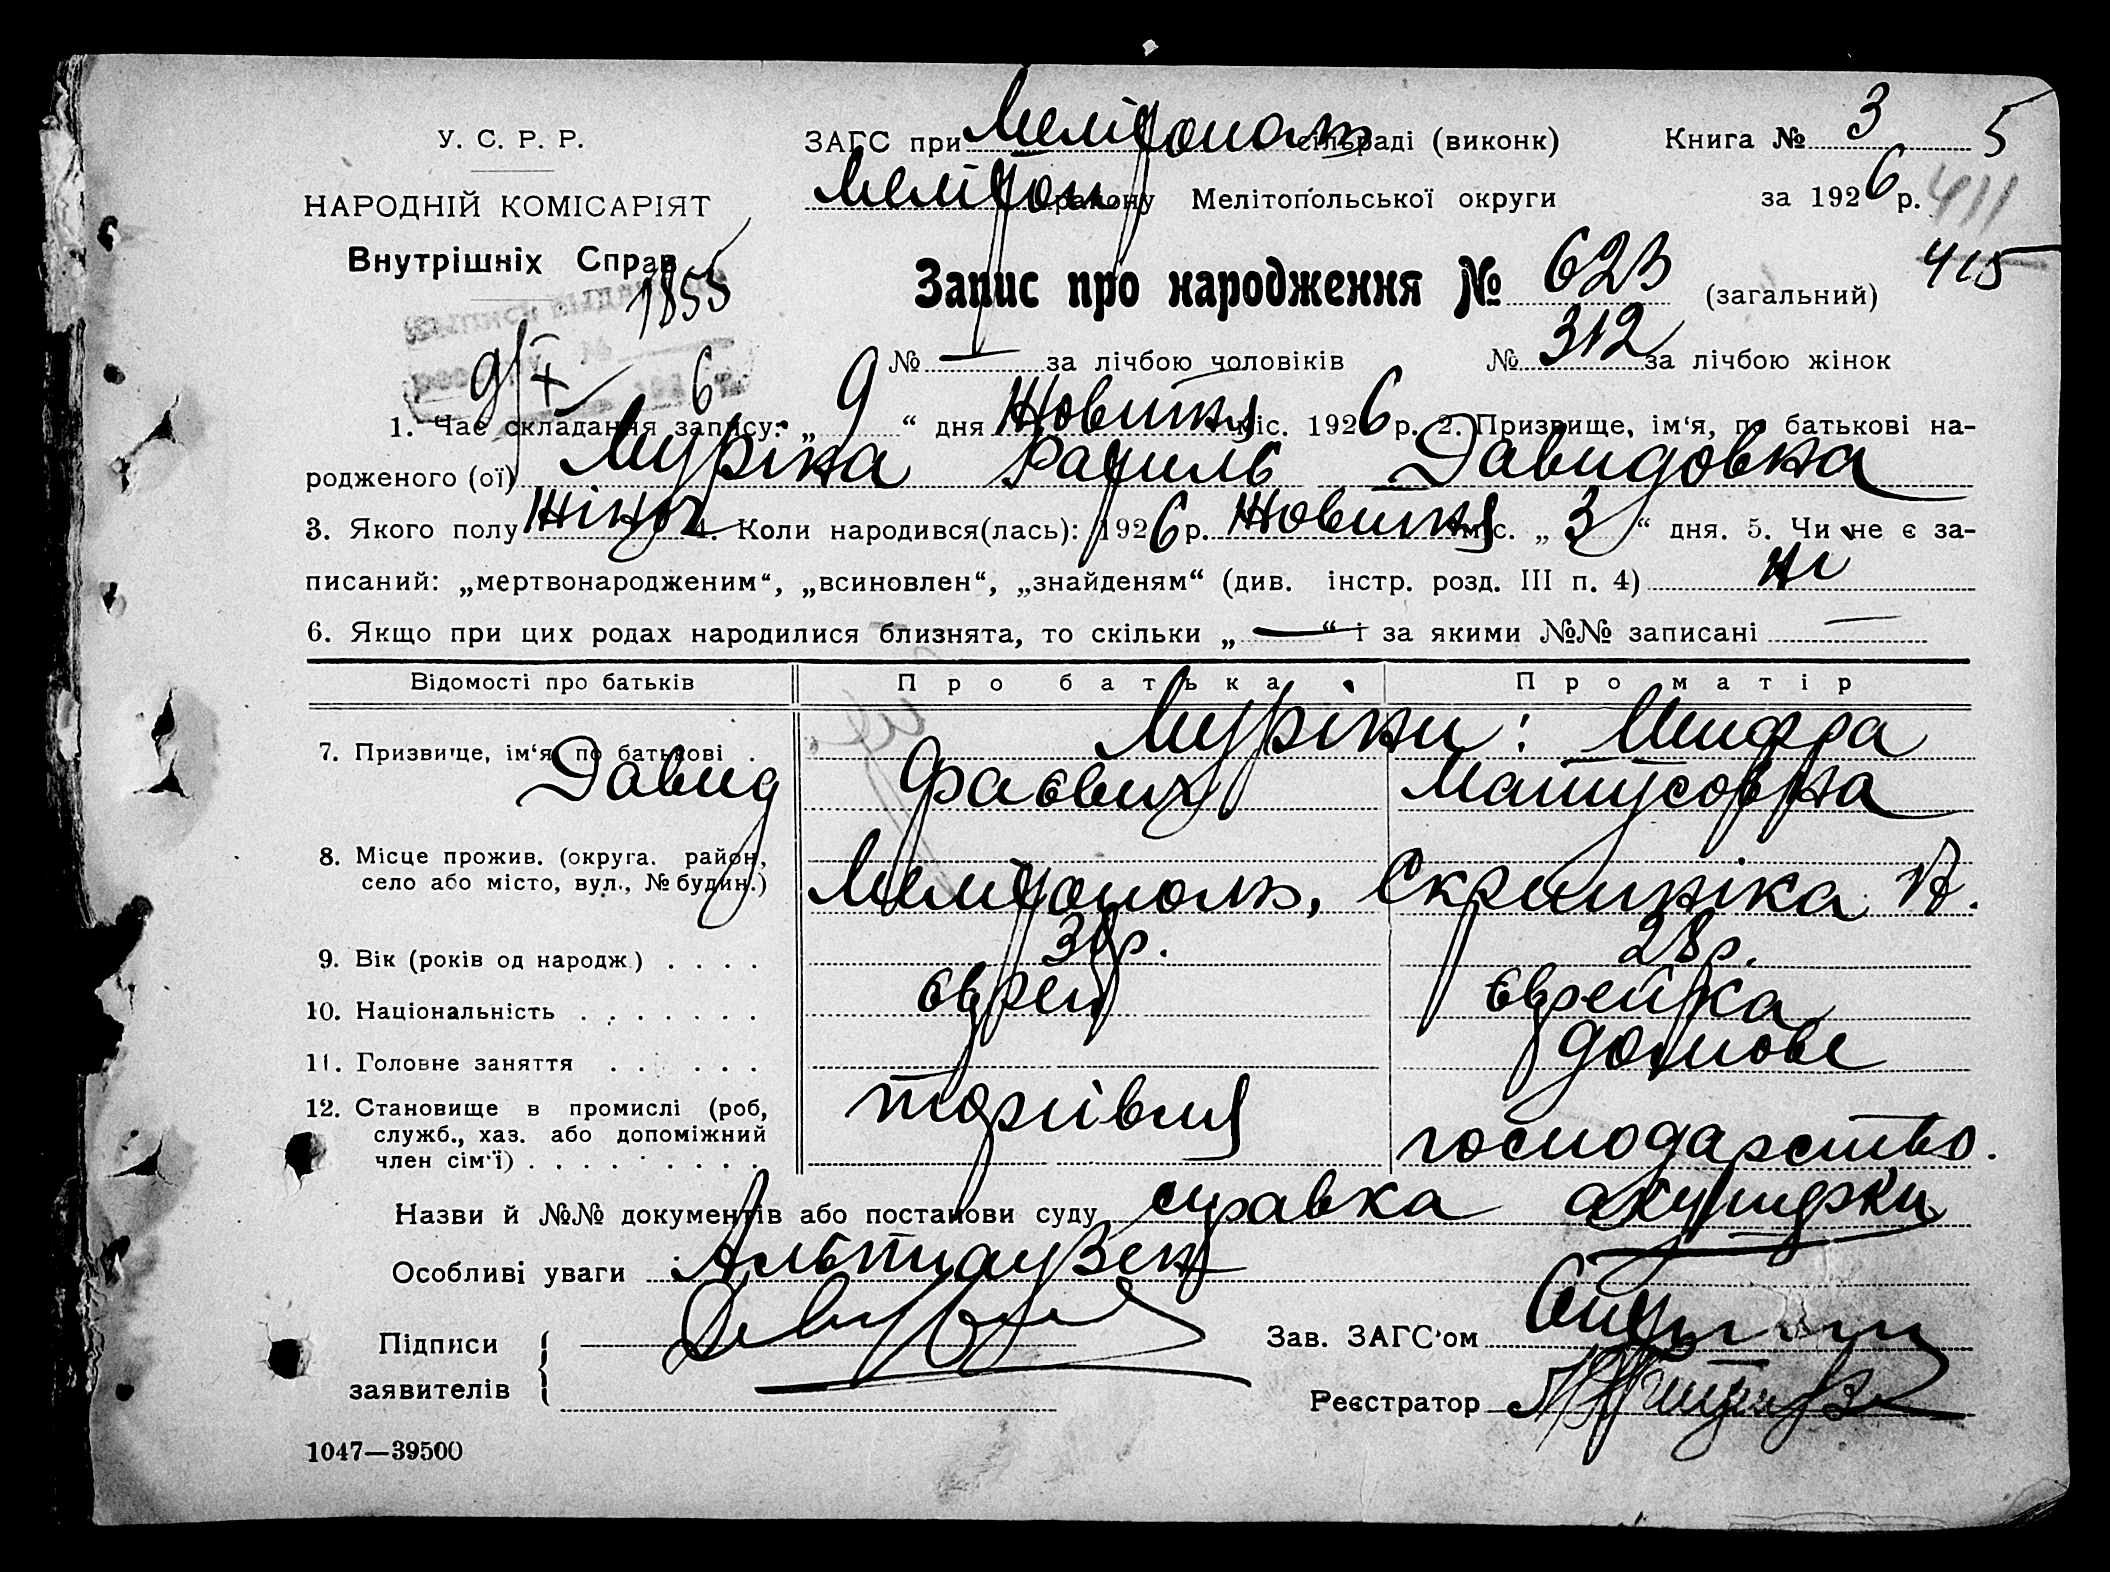 У. С. Р. Р.
НАРОДНІЙ КОМІСАРІЯТ
Внутрішніх Справ
1855
9/X 6
ЗАГС при Мелітополь сільраді (виконк)
Меліtоп району Мелітопольської округи
Книга № 3 5
за 1926 р. 411
415
Запис про народження № 623 (загальний)
№ — за лічбою чоловіків № 312 за лічбою жінок
1. Час складання запису: „ 9 “ дня Жовтня міс. 1926 р. 2. Призвище, ім‘я, по батькові на-
родженого (ої) Муріна Рахиль Давидовна
3. Якого полу жіноч 4. Коли народився(лась): 1926 р. Жовтня міс. „ 3 “ дня. 5. Чи не є за-
писаний: „мертвонародженим“, „всиновлен“, „знайденям“ (див. інстр. розд. III п. 4) ні
6. Якщо при цих родах народилися близнята, то скільки „ — “ і за якими №№ записані —
Відомості про батьків Про батька Про матір
7. Призвище, ім‘я по батькові . Муріни: Шифра
Давид Фаєвич Матусовна
8. Місце прожив. (округа. район,
село або місто, вул., № будин.) Мелітополь, Скрипніка
9. Вік (років од народж.) . . . . 28 р.
10. Національність . . . . . . . єврей єврейка
11. Головне заняття . . . . . . домове
12. Становище в промислі (роб, торгівля
служб., хаз. або допоміжний господарство.
член сім‘ї) . . . . . . . . .
Назви й №№ документів або постанови суду справка акушерки
Особливі уваги Альтгаузен
Підписи
заявителів
Зав. ЗАГС‘ом
Реєстратор
1047—39500